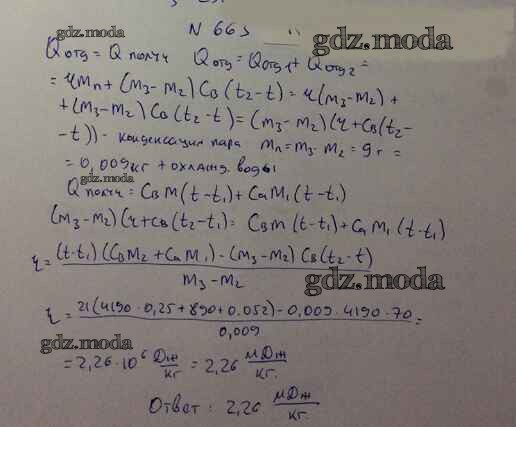 N 663
gdz.moda
gdz.moda
Qотд = Q получ Qотд = Qотд1 + Qотд2 =
= rmп + (m3 - m2) Cв (t2 - t) = r(m3 - m2) +
+ (m3 - m2) Cв (t2 - t) = (m3 - m2) (r + Cв (t2 -
- t)) - конденсация пара mп = m3 - m2 = 9г =
= 0,009кг + охлажд. воды
gdz.moda
Qполуч = Cвm (t - t1) + Caм1 (t - t1)
(m3 - m2) (r + cв (t2 - t1) = Cвm (t - t1) + Ca M1 (t - t1)
r = (t - t1) (Cвm2 + Caм1) - (m3 - m2) Cв (t2 - t)
m3 - m2
gdz.moda
r = 21(4190 · 0,25 + 890 + 0.052) - 0,009 · 4190 · 70 =
0,009
gdz.moda
= 2,26 · 10⁶ Дж/кг = 2,26 мДж/кг.
Ответ : 2,26 мДж/кг.